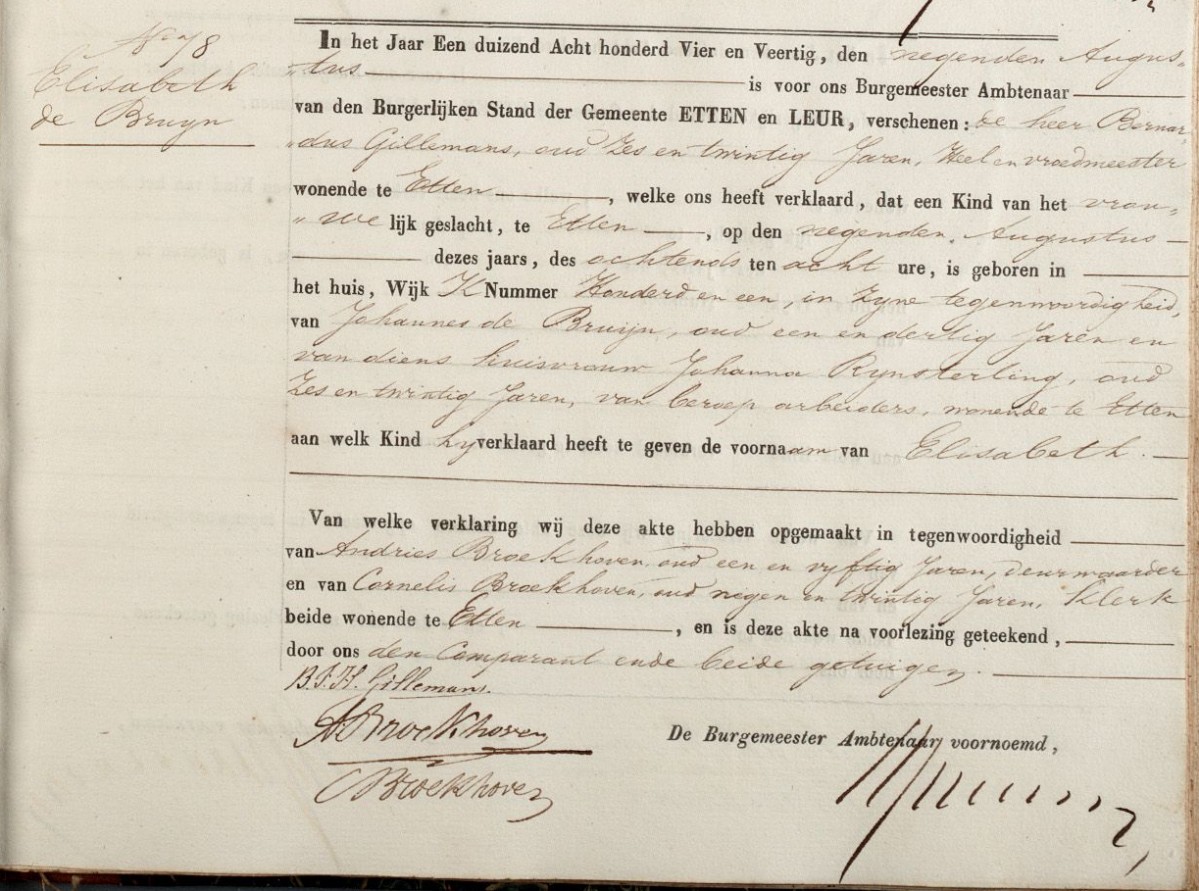 No 78
Elisabeth
de Bruyn
In het Jaar Een duizend Acht honderd Vier en Veertig, den negenden Augus-
"tus is voor ons Burgemeester Ambtenaar
van den Burgerlijken Stand der Gemeente ETTEN en LEUR, verschenen: de heer Bernar-
"dus Gillemans, oud Zes en twintig Jaren, Heel en vroedmeester
wonende te Etten, welke ons heeft verklaard, dat een Kind van het vrou-
"we lijk geslacht, te Etten, op den negenden Augustus
dezes jaars, des ochtends ten acht ure, is geboren in
het huis, Wijk K Nummer Honderd en een, in zyne tegenwoordigheid,
van Johannes de Bruijn, oud een en dertig Jaren en
van diens huisvrouw Johanna Rynsterling, oud
Zes en twintig Jaren, van beroep arbeiders, wonende te Etten
aan welk Kind hy verklaard heeft te geven de voornaam van Elisabeth.
Van welke verklaring wij deze akte hebben opgemaakt in tegenwoordigheid
van Andries Broekhoven, oud een en vyftig Jaren, deurwaarder
en van Cornelis Broekhoven, oud negen en twintig Jaren, Klerk
beide wonende te Etten, en is deze akte na voorlezing geteekend,
door ons den Comparant ende beide getuigen.
B.J.H. Gillemans.
A Broekhoven
De Burgemeester Ambtenaar voornoemd,
C Broekhoven